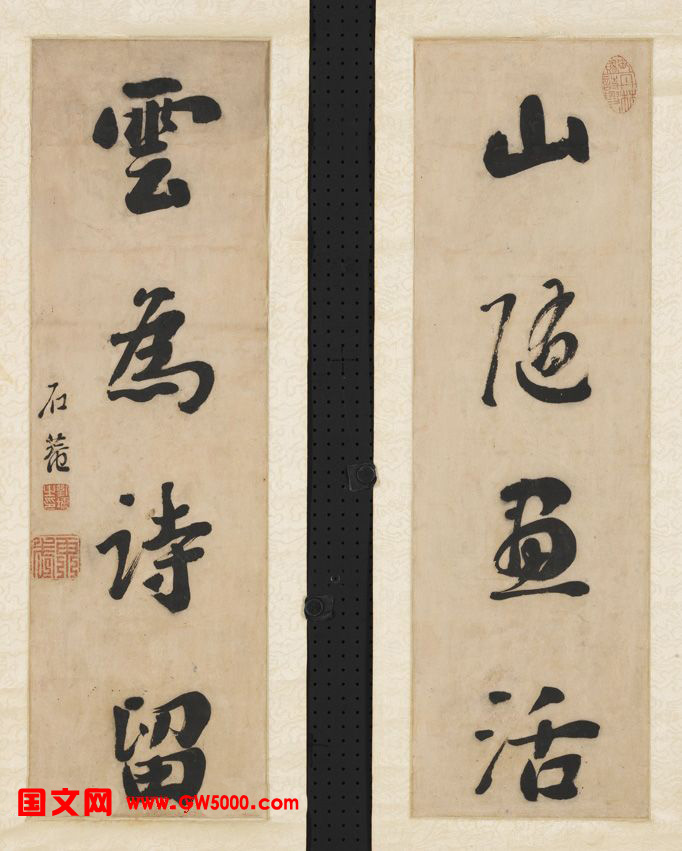 山随畫活
雲為詩留
石菴
国文网 www.GW5000.com